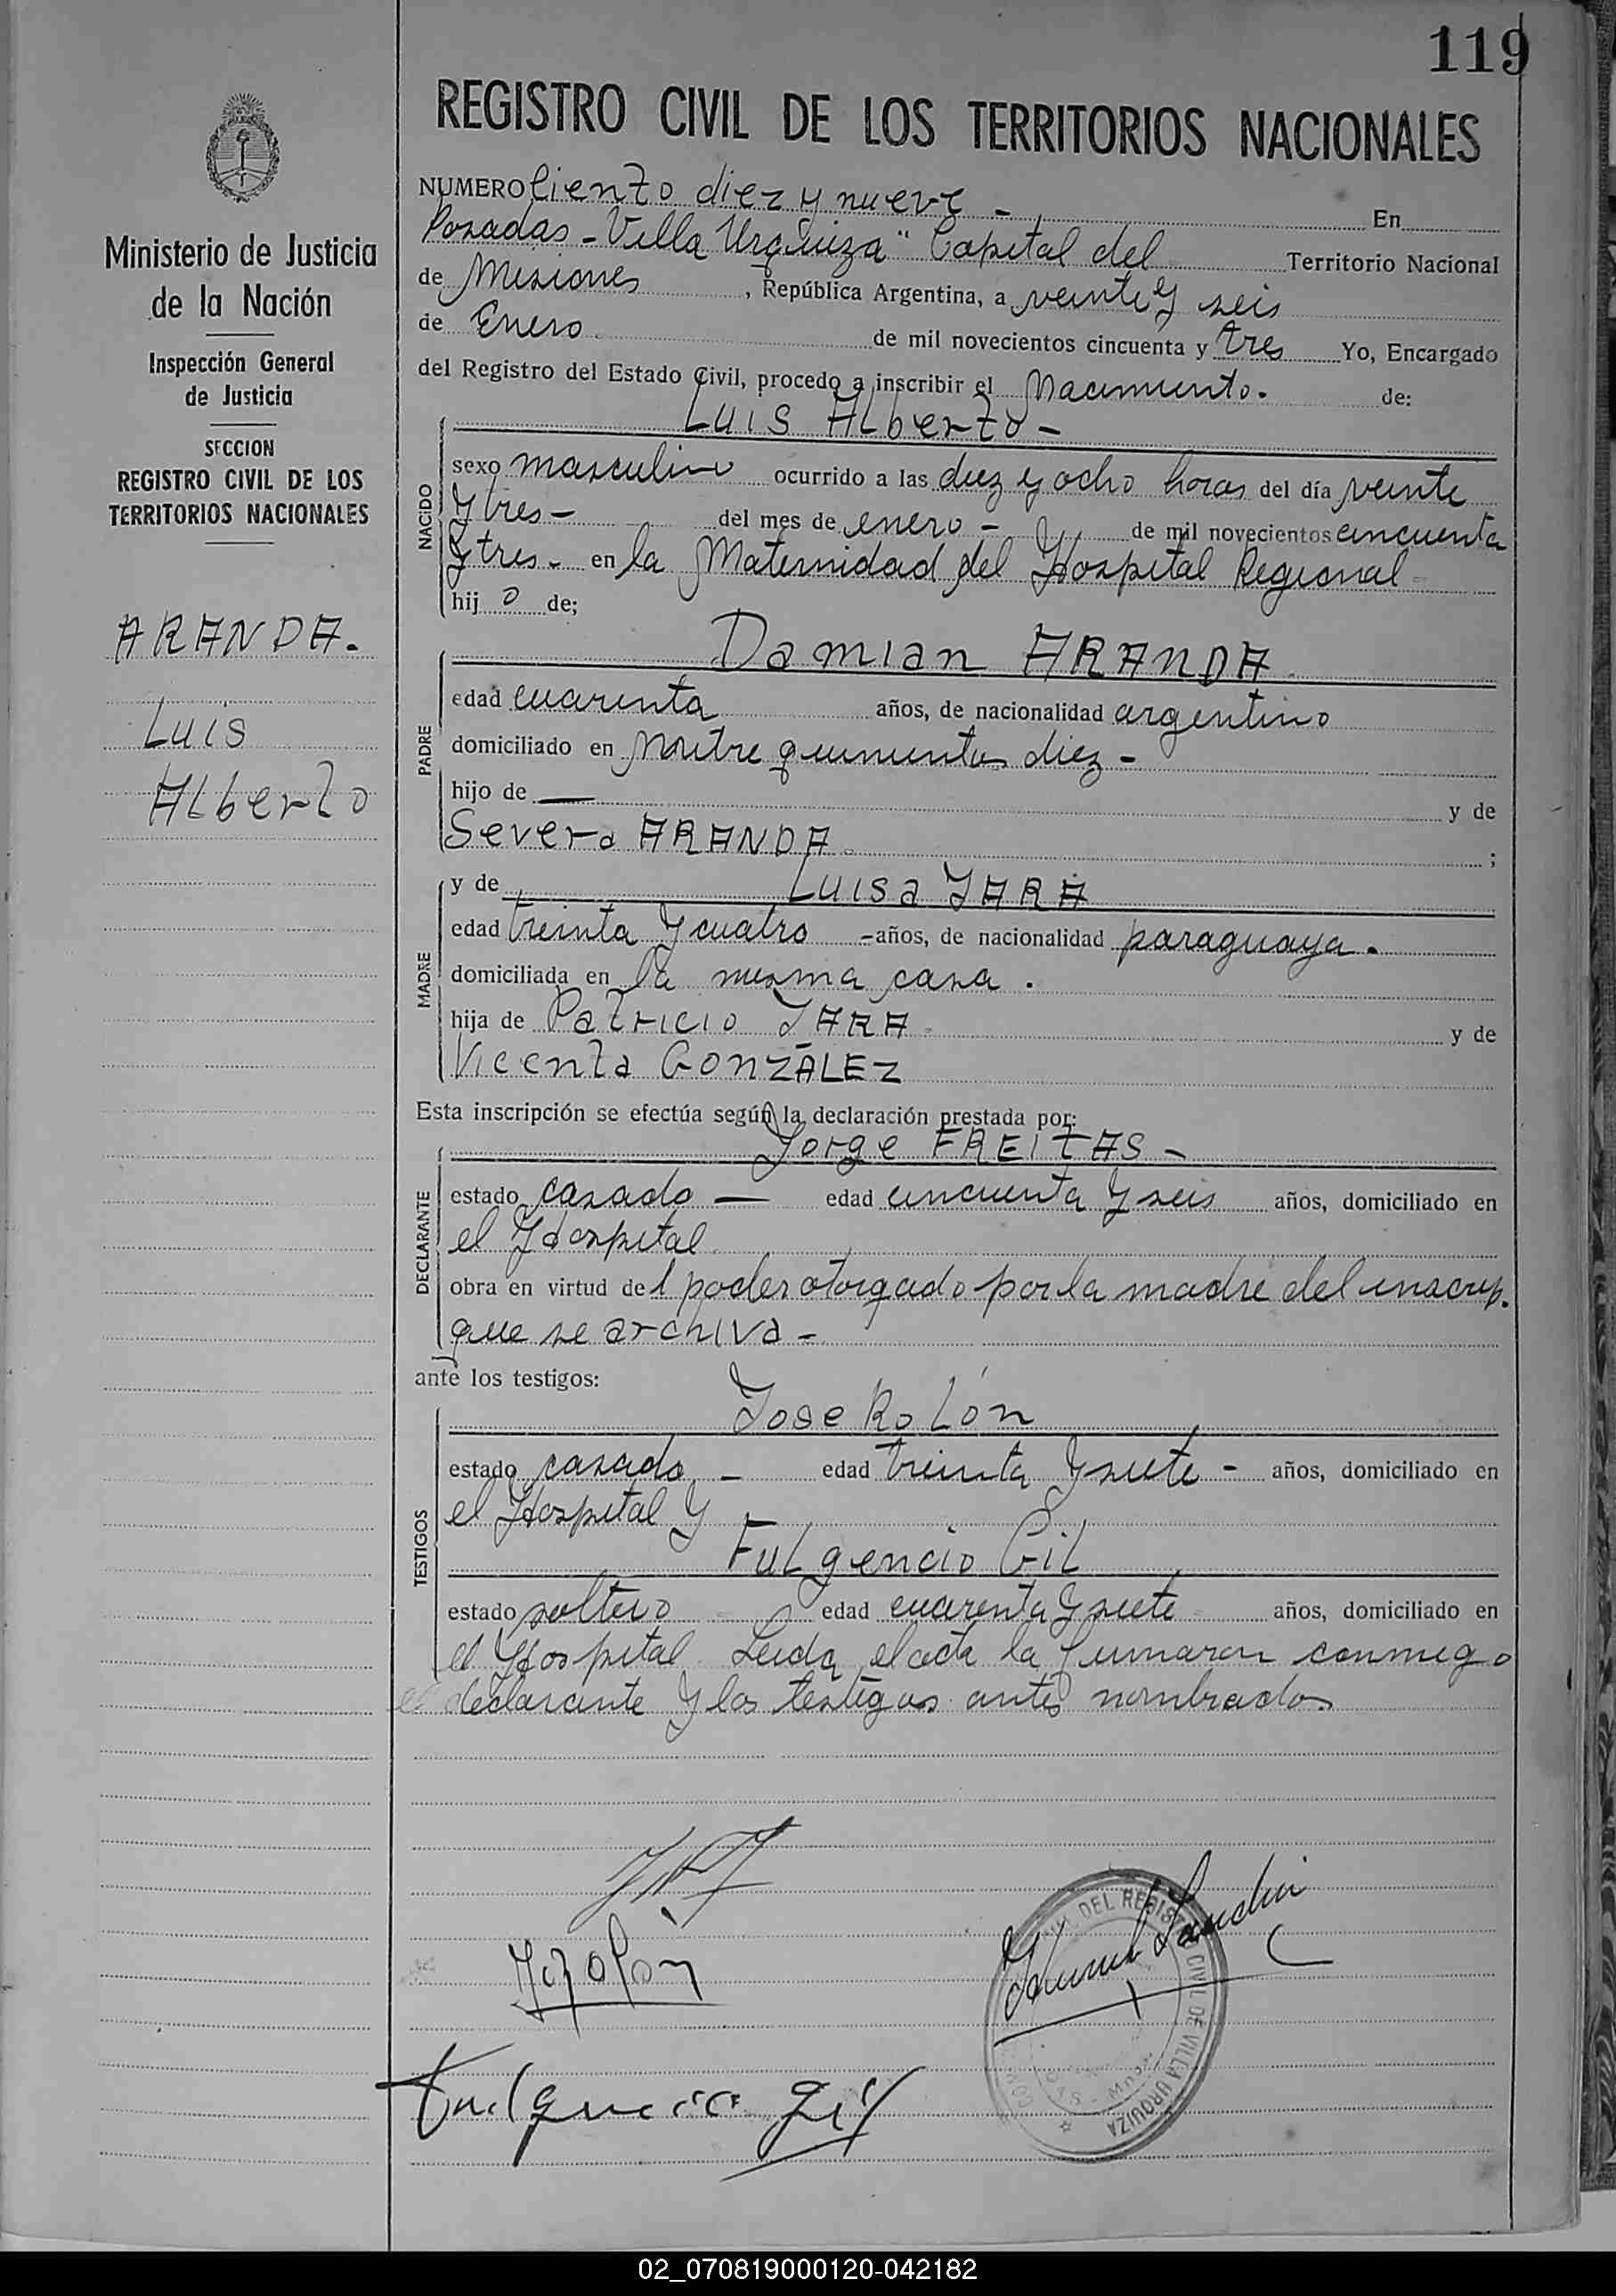 119
REGISTRO CIVIL DE LOS TERRITORIOS NACIONALES
Ministerio de Justicia
de la Nación
Inspección General
de Justicia
SECCION
REGISTRO CIVIL DE LOS
TERRITORIOS NACIONALES
ARANDA.
Luis
Alberto
NUMERO Ciento diez y nueve - En
Posadas - Villa Urquiza" Capital del Territorio Nacional
de Misiones, República Argentina, a veinte y seis
de Enero de mil novecientos cincuenta y tres Yo, Encargado
del Registro del Estado Civil, procedo a inscribir el Nacimiento. de:
Luis Alberto -
NACIDO
sexo masculino ocurrido a las diez y ocho horas del día veinte
y tres - del mes de enero - de mil novecientos cincuenta
y tres - en la Maternidad del Hospital Regional
hij o de;
PADRE
Damian ARANDA
edad cuarenta años, de nacionalidad argentino
domiciliado en Mitre quinientos diez -
hijo de — y de
Severa ARANDA ;
MADRE
y de Luisa JARA
edad treinta y cuatro - años, de nacionalidad paraguaya.
domiciliada en la misma casa.
hija de Patricio JARA y de
Vicenta GONZÁLEZ
Esta inscripción se efectúa según la declaración prestada por:
DECLARANTE
Jorge FREITAS -
estado casado — edad cincuenta y seis años, domiciliado en
el Hospital
obra en virtud del poder otorgado por la madre del inscrip.
que se archiva -
ante los testigos:
TESTIGOS
Jose Rolón
estado casado - edad treinta y siete - años, domiciliado en
el Hospital y
Fulgencio Gil
estado soltero edad cuarenta y siete años, domiciliado en
el Hospital Leida el acta la firmaron conmigo
el declarante y los testigos antes nombrados
J Rolón
Fulgencio Gil
DEL REGISTRO CIVIL DE VILLA URQUIZA
02_070819000120-042182